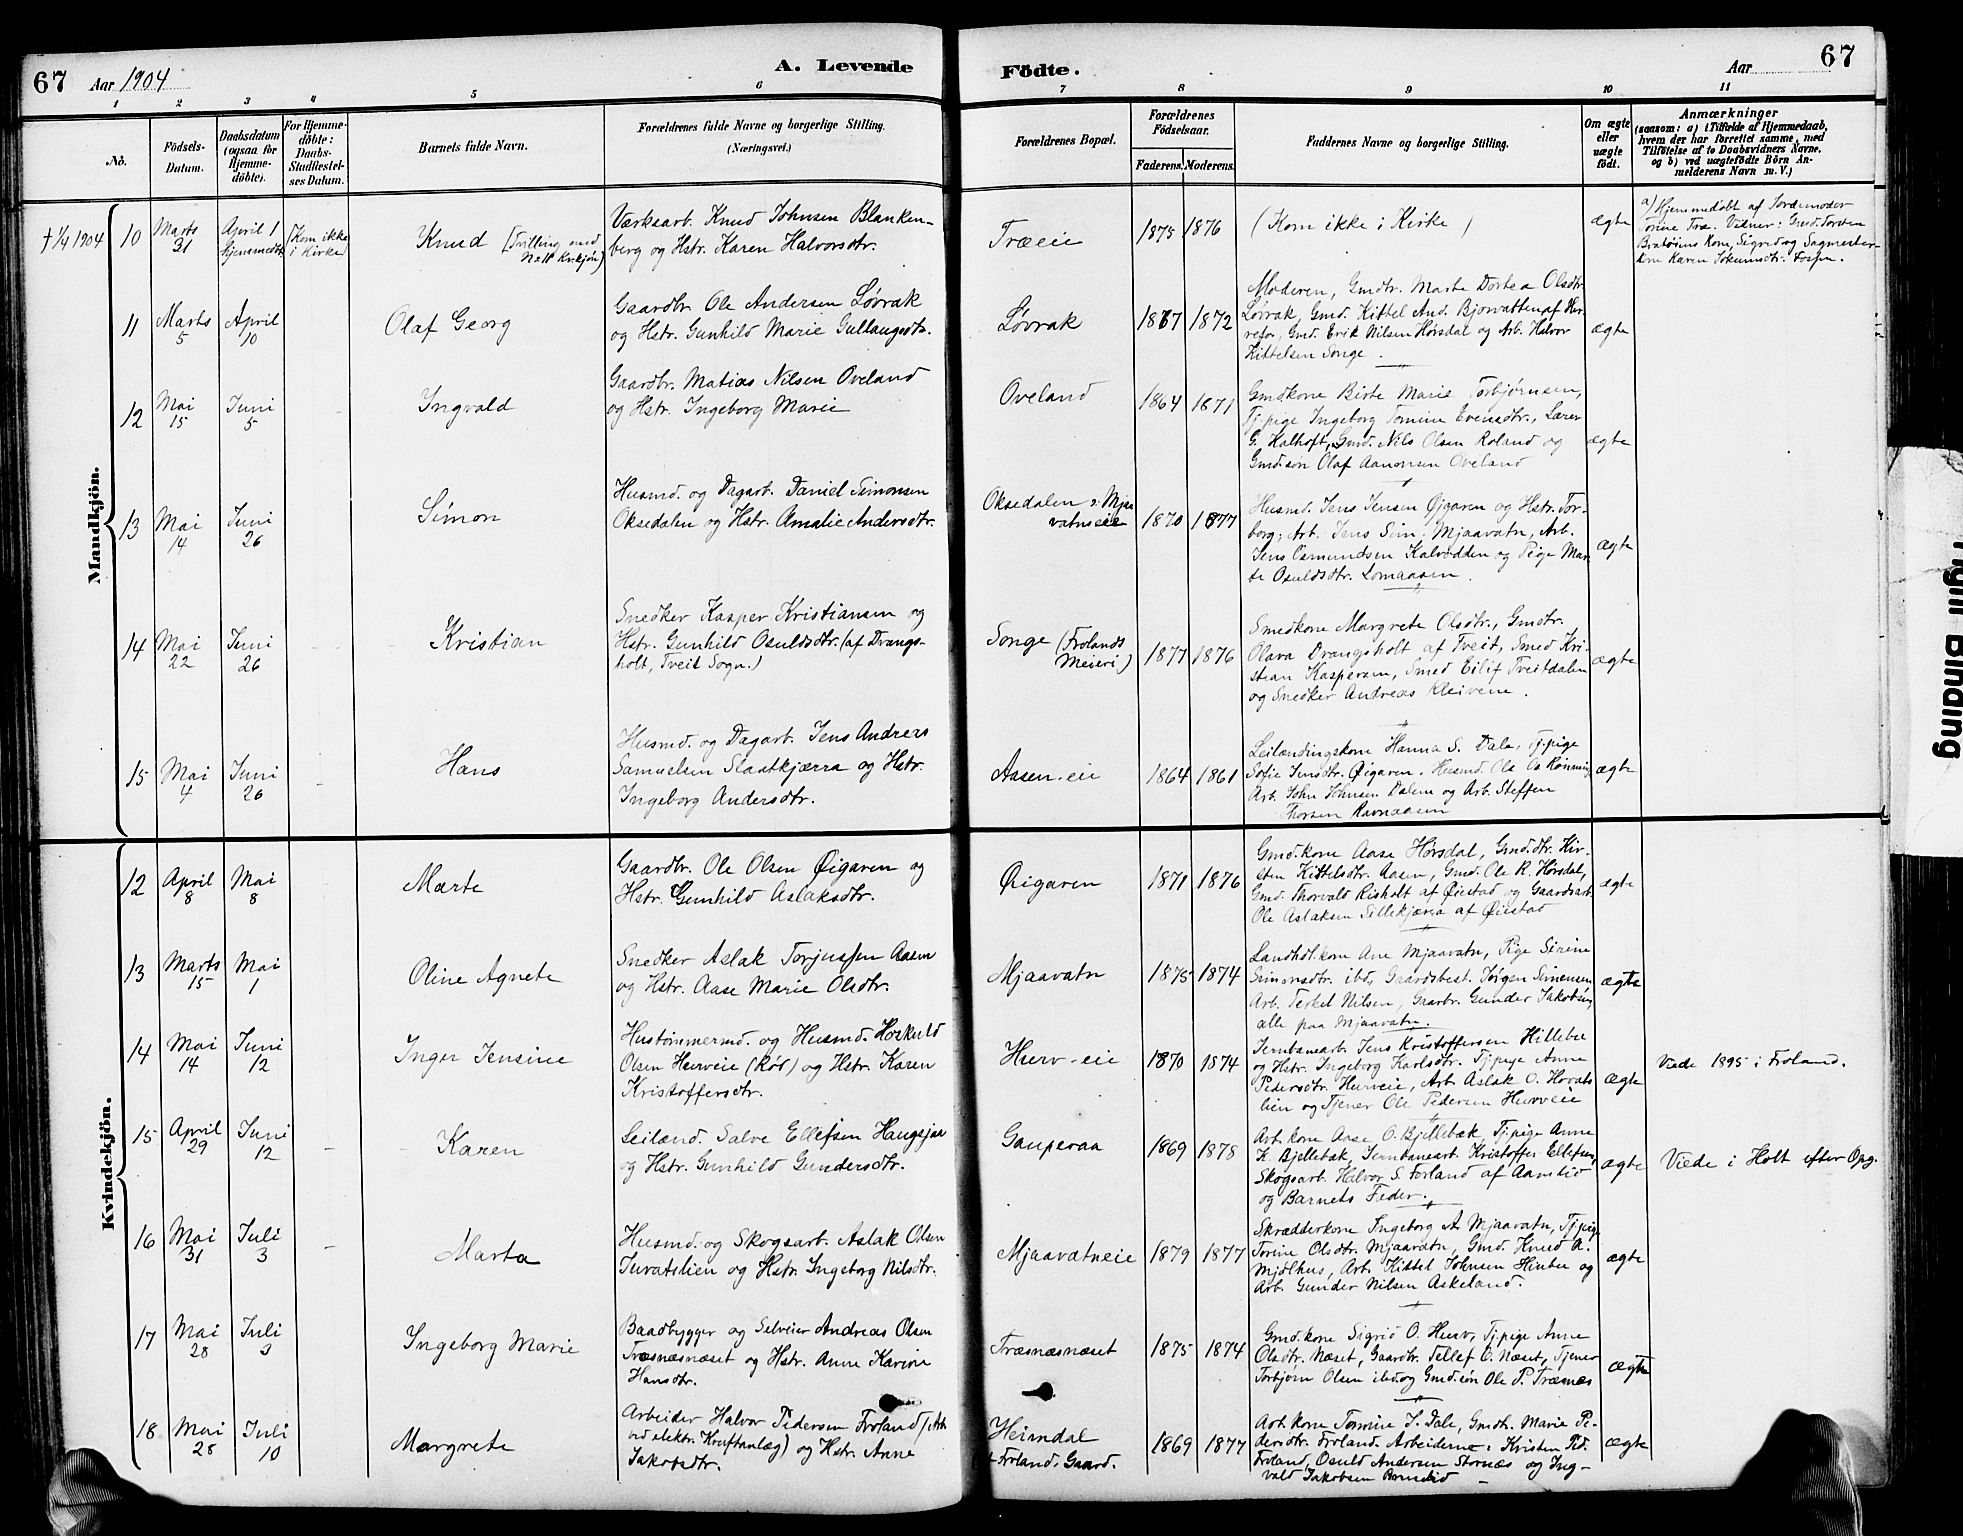 67 Aar 1904 A. Levende Födte. Aar 67
1 2 3 4 5 6 7 8 9 10 11
No.
Födsels-
Datum.
Daabsdatum
(ogsaa for
Hjemme-
döbte).
For Hjemme-
döbte:
Daabs-
Stadfæstel-
ses Datum.
Barnets fulde Navn.
Forældrenes fulde Navne og borgerlige Stilling.
(Næringsvei.)
Forældrenes Bopæl.
Forældrenes
Födselsaar.
Faderens. Moderens.
Faddernes Navne og borgerlige Stilling.
Om ægte
eller
uægte
födt.
Anmærkninger
(saasom: a) i Tilfælde af Hjemmedaab,
hvem der har forrettet samme, med
Tilföielse af to Daabsvidners Navne,
og b) ved uægtefödte Börn An-
melderens Navn m. V.)
Mandkjön.
† 1/4 1904
10
Marts
31
April 1
hjemmedbt.
[Kom ikke
i Kirke]
Knud [Tvilling med
No 11 Kv.kjön)
Værksarb. Knud Johnsen Blanken-
berg og Hstr. Karen Halvorsdtr.
Træeie
1875 1876
(Kom ikke i Kirke)
ægte
a) Hjemmedøbt af Jordemoder
Torine Træ. Vidner: Gmd. Torben
Karen
11
Marts
5
April
10
Olaf Georg
Gaardbr. Ole Andersen Løvrak
og Hstr. Gunhild Marie Gullaugsdtr.
Løvrak
1867 1872
Moderen, Gmdtr. Marte Dortea Olsdtr.
Løvrak, Gmd. Kittel And. Bjorvatten af Her-
refos, Gmd. Erik Nilsen Hørsdal og Arb. Halvor
Kittelsen Songe.
ægte
12
Mai
15
Juni
5
-
Ingvald
Gaardbr. Matias Nilsen Oveland
og Hstr. Ingeborg Marie
Oveland
1864 1871
Gmdkone Birte Marie Torbjørnsen,
Tj.pige Ingeborg Tomine Evensdtr., Lærer
G. Kalhoft, Gmd. Nils Olsen Roland og
Gmd.søn Olaf Aanonsen Oveland
ægte
13
Mai
14
Juni
26
-
Simon
Husmd. og Dagarb. Daniel Simonsen
Oksedalen og Hstr. Amalie Andersdtr.
Oksedalen : Mjaa-
vatnseie
1870 1877
Husmd. Jens Jensen Øigaren og Hstr. Tor-
borg; Arb. Jens Sim. Mjaavatn, Arb.
Jens Osmundsen Kalvedden og Pige Mar-
te Osuldsdtr. Lomaasen.
ægte
14
Mai
22
Juni
26
Kristian
Snedker Kasper Kristiansen og
Hstr. Gunhild Osuldsdtr. (af Drangs-
holt, Tveit Sogn.)
Songe (Frolands
Meieri)
1877 1876
Smedkone Margrete Olsdtr., Gmdtr.
Olava Drangsholt af Tveit, Smed Kri-
stian Kaspersen, Smed Eilif Tveitdalen
og Snedker Andreas Kleivene.
ægte
15
Mai
4
Juni
26
-
Hans
Husmd. og Dagarb. Jens Andreas
Samuelsen Slaatkjærra og Hstr.
Ingeborg Andersdtr.
Aasen-eie
1864 1861
Leilændingskone Hanna S. Dale, Tj.pige
Sofie Jensdtr. Øigaren. Husmd. Ole
Arb. John Johnsen Dalen og Arb. Steffen
Thorsen Ravnaasen
ægte
Kvindekjön.
12
April
8
Mai
8
Marte
Gaardbr. Ole Olsen Øigaren og
Hstr. Gunhild Aslaksdtr.
Øigaren
1871 1876
Gmd.kone Aase Hørsdal, Gmd.dtr. Kir-
sten Kittelsdtr. Aasen, Gmd. Ole R. Hørsdal,
Gmd. Thorvald Risholt af Øiestad og Gaardsarb.
Ole Aslaksen Sillekjærra af Øiestad
ægte
13
Marts
15
Mai
1
Oline Agnete
Snedker Aslak Torjussen Aasen
og Hstr. Aase Marie Olsdtr.
Mjaavatn
1875 1874
Landhdl.kone Ane Mjaavatn, Pige Sirine
Simonsdtr. ibd, Gaardsbest. Jørgen Simonsen
Arb. Terkel Nilsen, Gaarbr. Gunder Jakobsen,
alle paa Mjaavatn.
ægte
14
Mai
14
Juni
12
Inger Jensine
Hustømmermd. og Husmd. Horkuld
Olsen Hurveie (Rød) og Hstr. Karen
Kristoffersdtr.
Hurv-eie
1870 1874
Jernbanearb. Jens Kristoffersen Hillebæ
og Hstr. Ingeborg Karlsdtr. Tj.pige Anne
Pedersdtr. Hurveie, Arb. Aslak O. Hovats-
lien og Tjener Ole Pedersen Hurveie
ægte
Viede 1895 i Froland.
15
April
29
Juni
12
-
Karen
Leilænd. Salve Ellefsen Haugsjaa
og Hstr. Gunhild Gundersdtr.
Gauperaa
1869 1878
Arb. kone Aase O. Bjellebæk, Tj.pige Anne
K. Bjellebæk, Jernbanearb. Kristoffer Ellefsen,
Skogsarb. Halvor S. Forland af Aamlid
og Barnets Fader.
ægte
Viede i Holt efter Opg.
16
Mai
31
Juli
3
-
Marta
Husmd. og Skogsarb. Aslak Olsen
Juvatslien og Hstr. Ingeborg Nilsdtr.
Mjaavatneie
1879 1877
Skrædderkone Ingeborg A. Mjaavatn, Tj.pige
Torine Olsdtr. Mjaavatn, Gmd. Knud A.
Mjølhus, Arb. Kittel Johnsen Hinbu og
Arb. Gunder Nilsen Askeland.
ægte
17
Mai
28
Juli
3
Ingeborg Marie
Baadbygger og Selveier Andreas Olsen
Træsnæsnæset og Hstr. Anne Karine
Hansdtr.
Træsnæsnæset
1875 1874
Gmd.kone Sigrid O. Hurv, Tj.pige Anne
Olsdtr. Næset, Gaardbr. Tellef O. Næset, Tjener
Torbjørn Olsen ibd og Gmd.søn Ole P. Træsnæs
ægte
18
Mai
28
Juli
10
Margrete
Arbeider Halvor Pedersen Froland (Arb.
ved elektr. Kraftanlæg) og Hstr. Anne
Jakobsdtr.
Heimdal
Froland. Gaard.
1869 1877
Arb. kone Tomine J. Dale, Gmdtr. Marie Pe-
dersdtr. Froland. Arbeiderne: Kristen Ped.
Froland, Osuld Andersen Stornæs og Ing-
vald Jakobsen
ægte
Binding